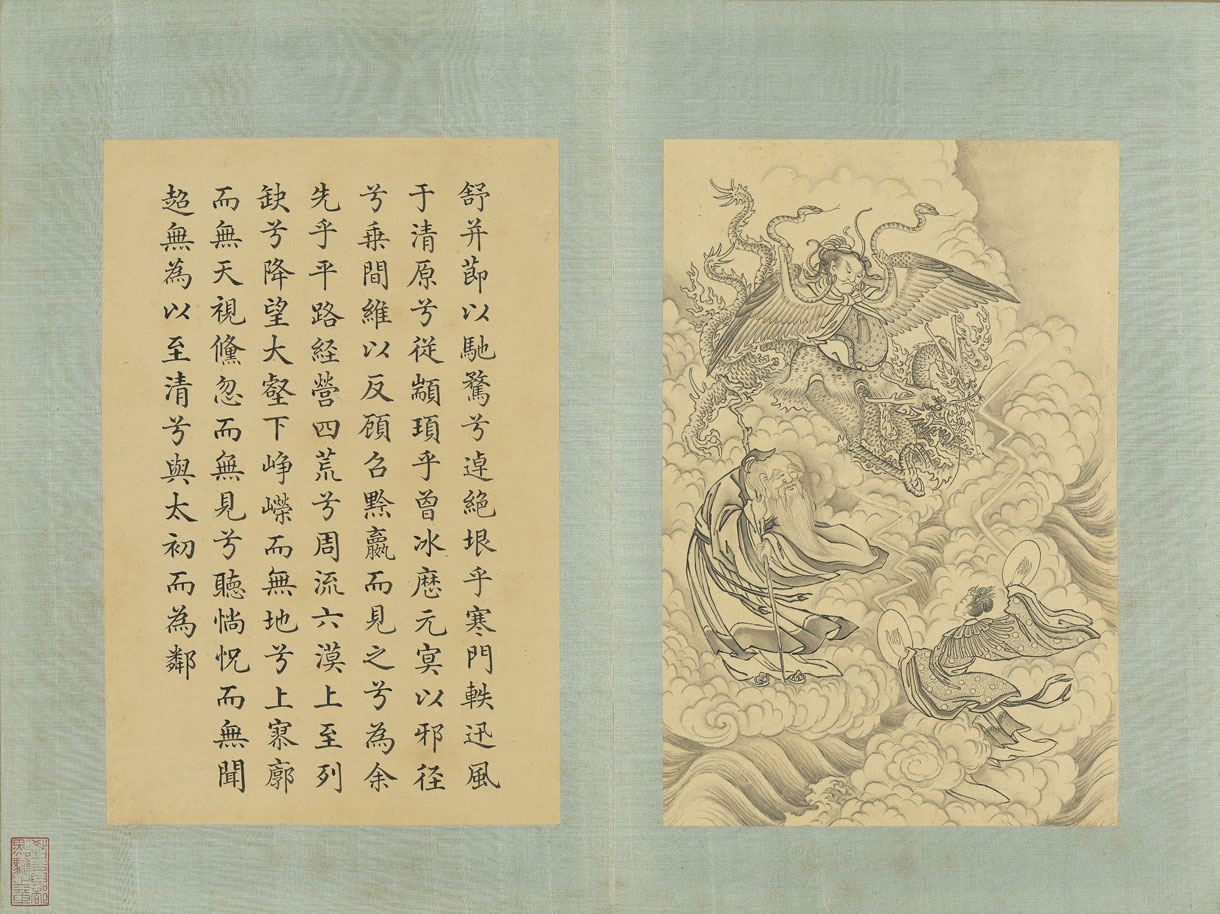 舒并莭以馳騖兮逴絕垠乎寒門軼迅風
于清原兮從顓頊乎曾冰厯元冥以邪径
兮乗間維以反顧召黔羸而見之兮為余
先乎平路経營四荒兮周流六漠上至列
缺兮降望大壑下崢嶸而無地兮上寥廓
而無天視儵忽而無見兮聽惝怳而無聞
超無為以至清兮與太初而為鄰